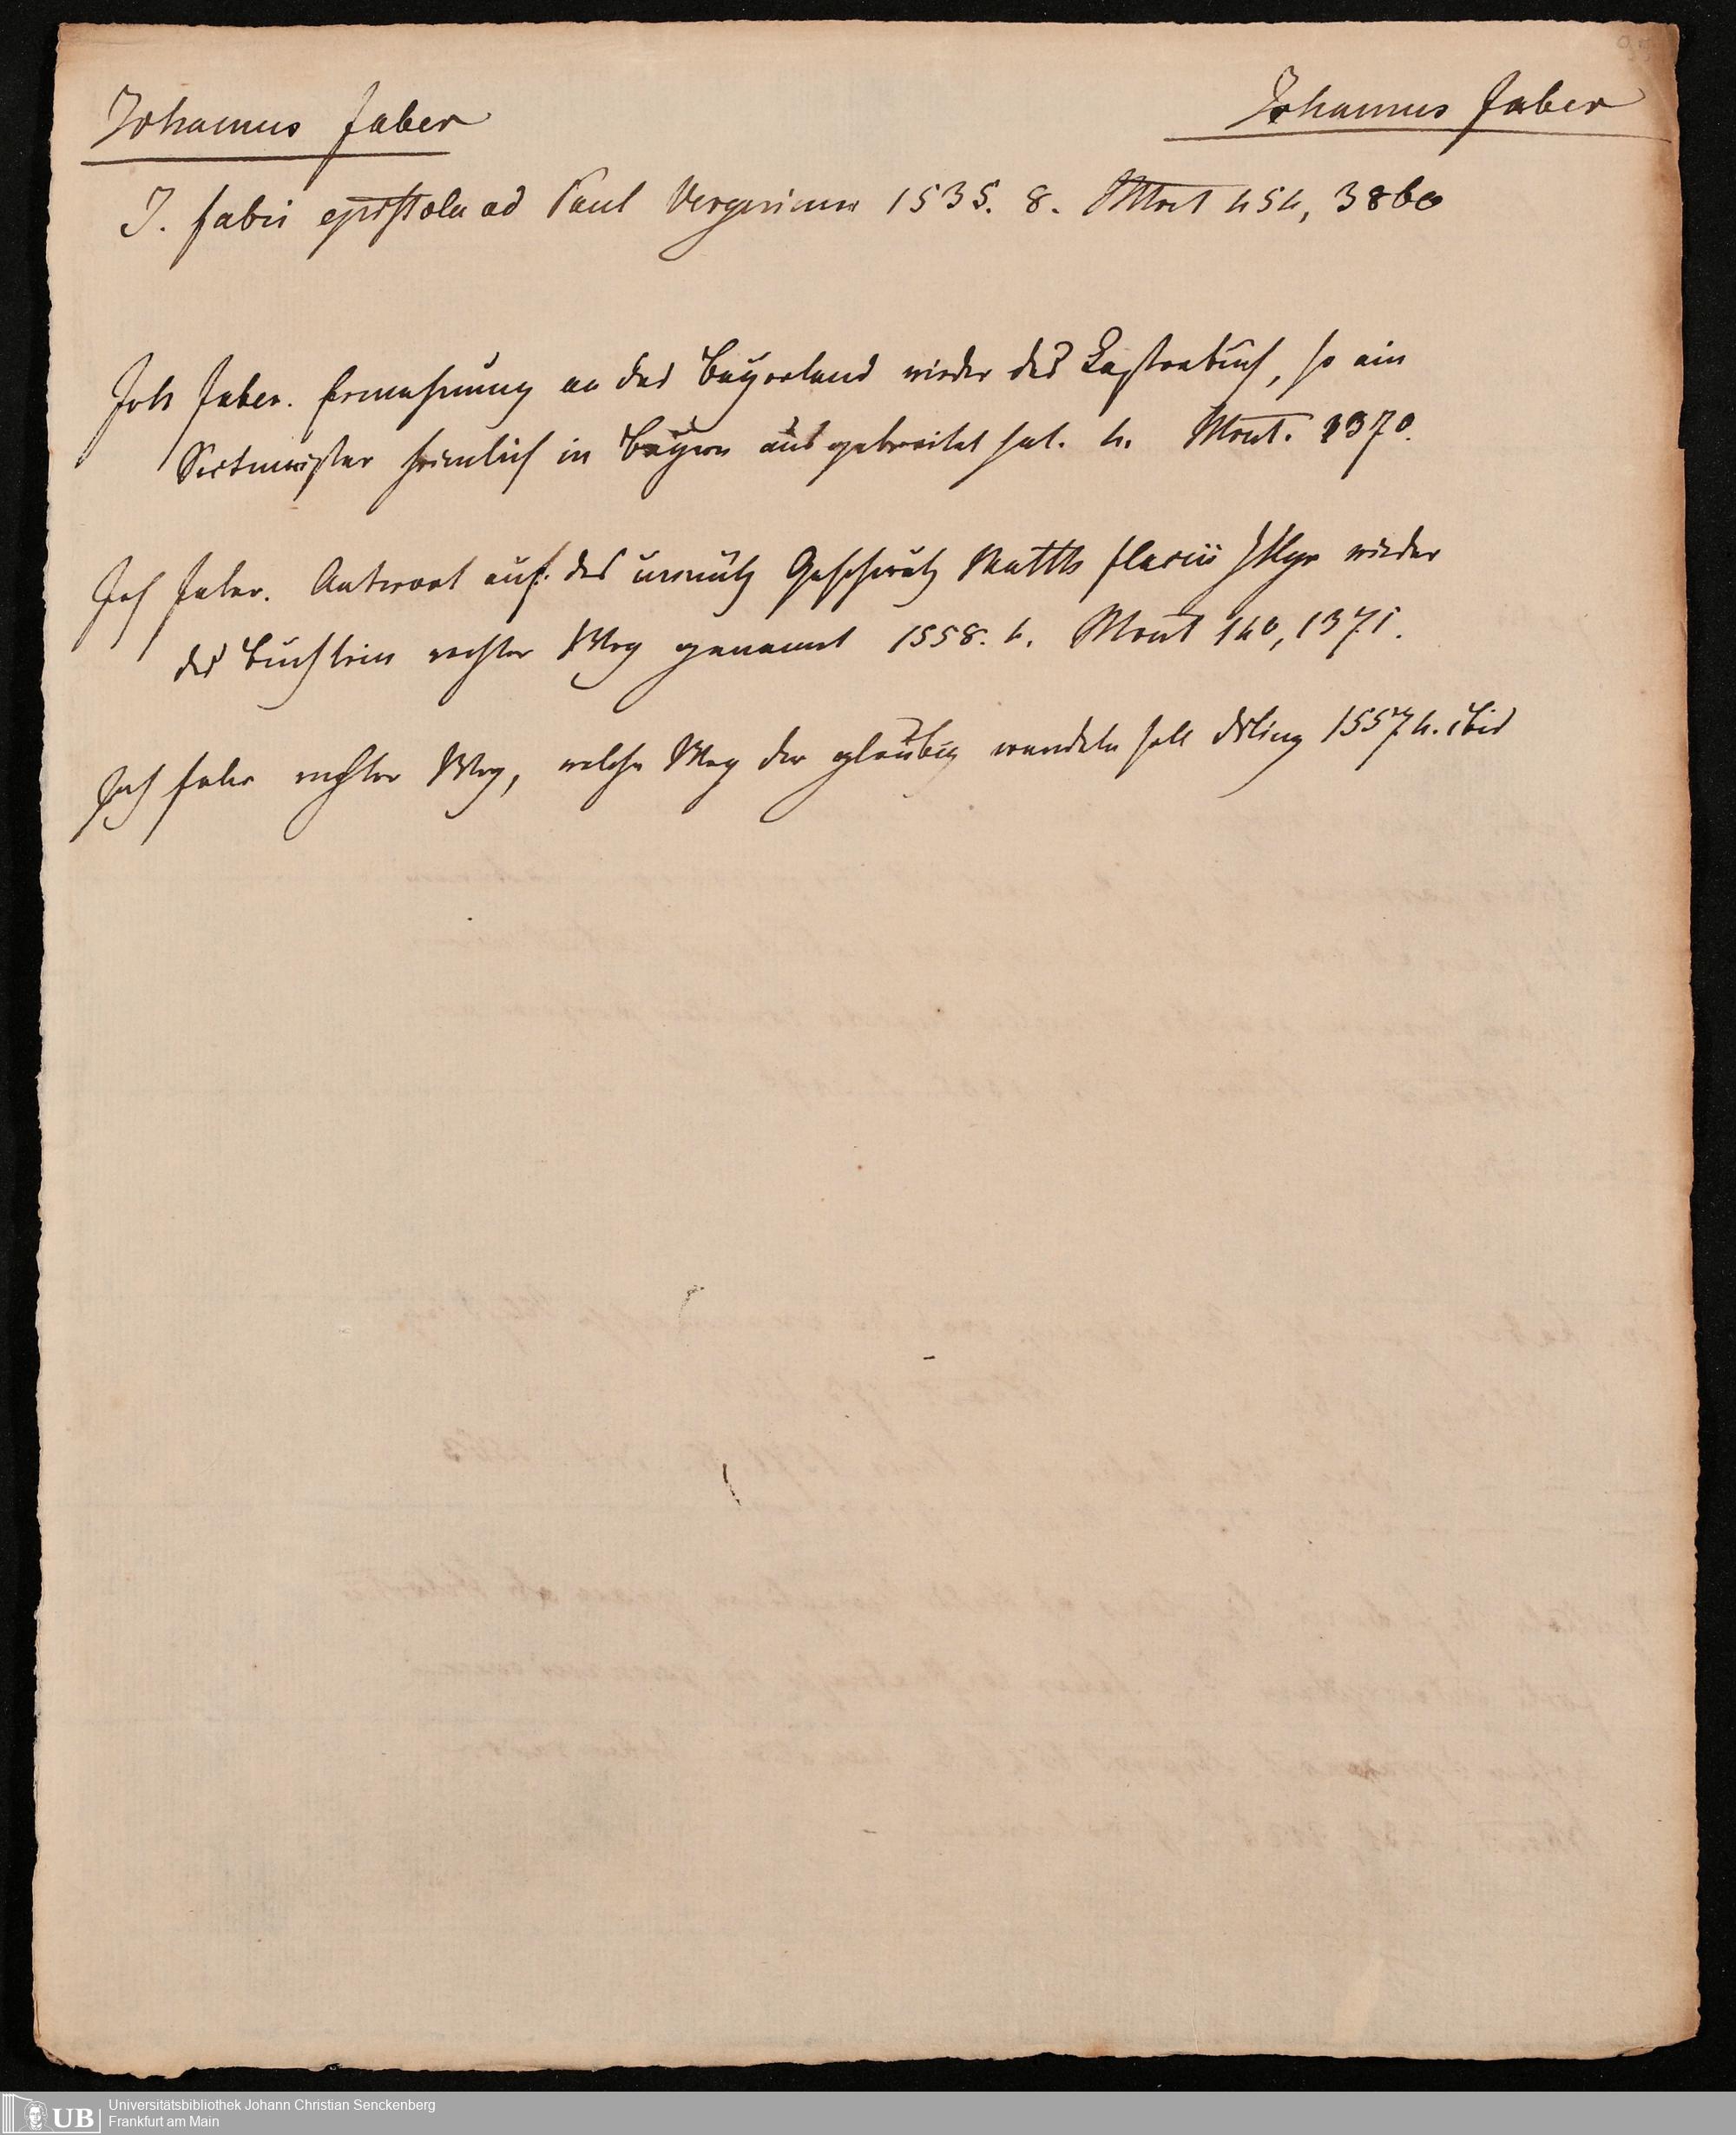 Johannes Faber
Johannes Faber
J. Fabri epistola ad Paul Vergerium 1535. 8. Mont 454, 3860
Joh Faber. Ermahnung an das Bayerland wieder das Lesterbuch, so ein
Sectmeister heimlich in Bayern ausgebreitet hat. 4. Mont. 1370.
Joh Faber. Antwort auf das unnütz Geschwätz Matth Flacii Illyr wieder
das Buchlein rechter Weg genannt 1558. 4. Mont 140, 1371.
Joh Faber rechter Weg, welche Weg der glaubig wandeln soll Diling 1557 4. ibid
UB
Universitätsbibliothek Johann Christian Senckenberg
Frankfurt am Main